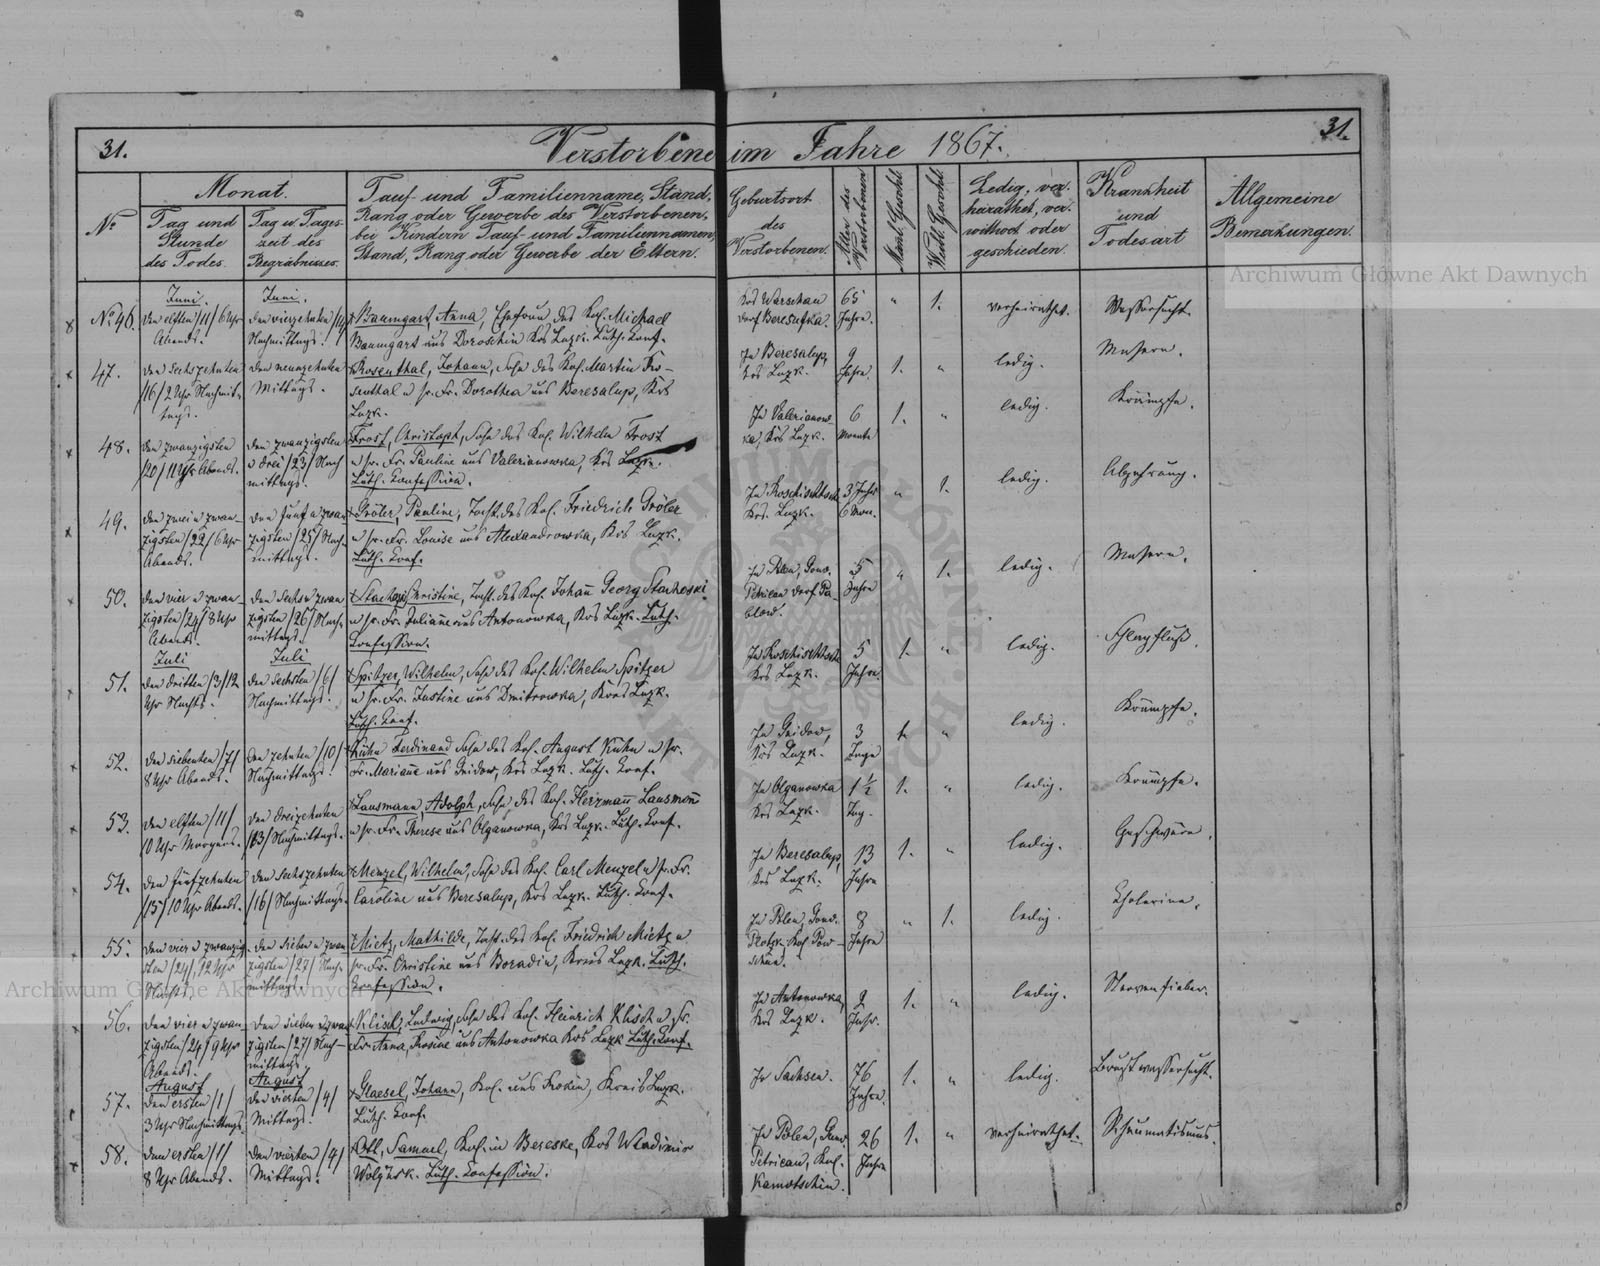 31.
Verstorbene im Jahre 1867.
31.
Nº
Monat.
Tag und
Stunde
des Todes.
Tag u. Tages-
zeit des
Begräbnisses.
Tauf- und Familienname, Stand,
Rang oder Gewerbe des Verstorbenen,
bei Kindern Tauf- und Familiennamen,
Stand, Rang oder Gewerbe der Eltern.
Geburtsort
des
Verstorbenen.
Alter des
Verstorbenen
Mänl. Geschl.
Weibl. Geschl.
Ledig, ver-
heirathet, ver-
wittwet oder
geschieden.
Krankheit
und
Todesart
Allgemeine
Bemerkungen.
Nº 46.
Juni.
den elften /11/ 6 Uhr
Abends.
Juni.
den vierzehnten /14/
Nachmittags.
Baumgart, Anna, Ehefrau des Kol. Michael
Baumgart aus Doroschin Krs Luzk. Luth. Konf.
Krs Warschau
Dorf
65
Jahre.
"
1.
verheirathet.
Wassersucht.
47.
den sechszehnten
/16/ 2 Uhr Nachmit-
tags.
den neunzehnten
Mittags.
Rosenthal, Johann, Sohn des Kol. Martin Ro-
senthal u sr. Fr. Dorothea aus Beresalup, Krs
Luzk.
In Beresalup,
Krs Luzk.
9
Jahre.
1.
"
ledig.
Masern.
48.
den zwanzigsten
/20/ 11 Uhr Abends.
den zwanzigsten
u drei /23/ Nach
mittags.
Frost, Christoph, Sohn des Kol. Wilhelm Frost
u sr. Fr. Pauline aus Valerianowka, Krs Luzk.
Luth. Konfession.
In Valerianow-
ka, Krs Luzk.
6
Monate
1.
"
ledig.
Krämpfe.
49.
den zwei u zwan-
zigsten /22/ 6 Uhr
Abends.
den fünf u zwan
zigsten /25/ Nach-
mittags.
Gröler, Pauline, Tocht. des Kol. Friedrich Gröler
u sr. Fr. Louise aus Alexandrowka, Krs Luzk.
Luth. Konf.
In Roschischtsch
Krs. Luzk.
3 Jahr
6 Mon.
"
1.
ledig.
Abzehrung.
50.
den vier u zwan-
zigsten /24/ 8 Uhr
Abends.
den sechs u zwan
zigsten /26/ Nach-
mittags.
Christine, Tocht. des Kol. Johañ Georg
u sr. Fr. Juliañe aus Antonowka, Krs Luzk. Luth.
Konfession.
In Polen, Gouv.
Petricau Dorf
5
Jahre
"
1.
ledig.
Masern.
51.
Juli
den dritten /3/ 12
Uhr Nachts.
Juli
den sechsten /6/
Nachmittags.
Spitzer, Wilhelm, Sohn des Kol. Wilhelm Spitzer
u sr. Fr. Justine aus Dmitrowka, Kres Luzk.
Luth. Konf.
In Roschischtsch
Krs Luzk.
5
Jahre.
1.
"
ledig.
Schlagfluß.
52.
den siebenten /7/
8 Uhr Abends.
den zehnten /10/
Nachmittags.
Kühn Ferdinand Sohn des Kol. August Kühn u sr.
Fr. Mariañe aus Geidow, Krs Luzk. Luth. Konf.
In Geidow,
Krs Luzk.
3
Tage
1.
"
ledig.
Krämpfe.
53.
den elften /11/
10 Uhr Morgens.
den dreizehnten
/13/ Nachmittags.
Lansmann, Adolph, Sohn des Kol. Herrmañ Lansmañ
u sr. Fr. Therese aus Olganowka, Krs Luzk. Luth. Konf.
In Olganowka
Krs Luzk.
1 ½
Tag.
1.
"
ledig.
Krämpfe.
54.
den fünfzehnten
/15/ 10 Uhr Abends.
den sechszehnten
/16/ Nachmittags.
Menzel, Wilhelm, Sohn des Kol. Carl Menzel u sr. Fr.
Caroline aus Beresalup, Krs Luzk. Luth. Konf.
In Beresalup,
Krs Luzk.
13
Jahre
1.
"
ledig.
Geschwüre.
55.
den vier u zwanzig-
sten /24/, 12 Uhr
Nachts.
den sieben u zwan
zigsten /27/ Nach-
mittags.
Mietz, Mathilde, Tocht. des Kol. Friedrich Mietz u
sr. Fr. Christine aus Boradin, Kreis Luzk. Luth.
Konfession.
In Polen, Gouv.
Plotzk, Kol.
8
Jahre
"
1.
ledig.
Cholerine.
56.
den vier u zwan-
zigsten /24/ 9 Uhr
Abends.
den sieben u zwan
zigsten /27/ Nach-
mittags.
Klisch, Ludwig, Sohn des Kol. Heinrich Klisch u sr.
Fr. Anna, Rosine aus Antonowka Krs Luzk Luth. Konf.
In Antonowka,
Krs Luzk.
2
Jahr.
1.
"
ledig.
Nervenfieber.
57.
August
den ersten /1/
3 Uhr Nachmittags.
August
den vierten /4/
Mittags.
Glaesel, Johann, Kol. aus Kreis Luzk.
Luth. Konf.
In Sachsen.
76
Jahre.
1.
"
ledig.
Brustwassersucht.
58.
den ersten /1/
8 Uhr Abends.
den vierten /4/
Mittags.
Ott, Samuel, Kol. in Bereske, Krs Wladimir
Wolynsk. Luth. Confession.
In Polen, Gouv
Petricau, Kol.
Kamotschin.
26
Jahre
1.
"
verheirathet.
Rheumatismus.
Archiwum Główne Akt Dawnych
Archiwum Główne Akt Dawnych